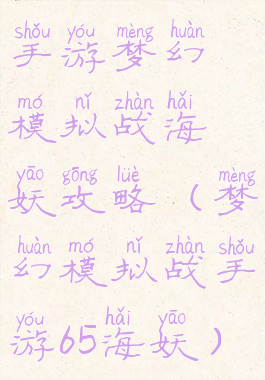 shǒu yóu mèng huàn
手游梦幻
mó nǐ zhàn hǎi
模拟战海
yāo gōng lüè mèng
妖攻略（梦
huàn mó nǐ zhàn shǒu
幻模拟战手
yóu hǎi yāo
游65海妖）